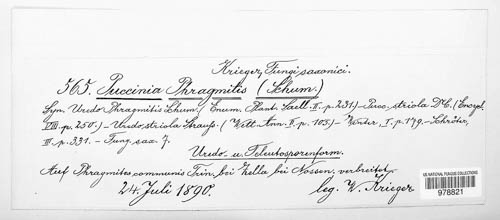 Krieger, Fungi saxonici.
565. Puccinia Phragmitis (Schum.)
Syn. Uredo Phragmitis Schum. (Enum. Plant. Saell. II. p. 231.) – Pucc. striola DC. (Encycl.
VIII. p. 250.) – Uredo striola Strauß. (Wett. Ann. II. p. 105.) – Winter, I. p. 179. – Schröter,
III. p. 331. – Fung. sax. 7.
Uredo- u. Teleutosporenform.
Auf Phragmites communis Trin. bei Zella bei Nossen, verbreitet,
24. Juli 1890.
leg. W. Krieger
US NATIONAL FUNGUS COLLECTIONS
978821